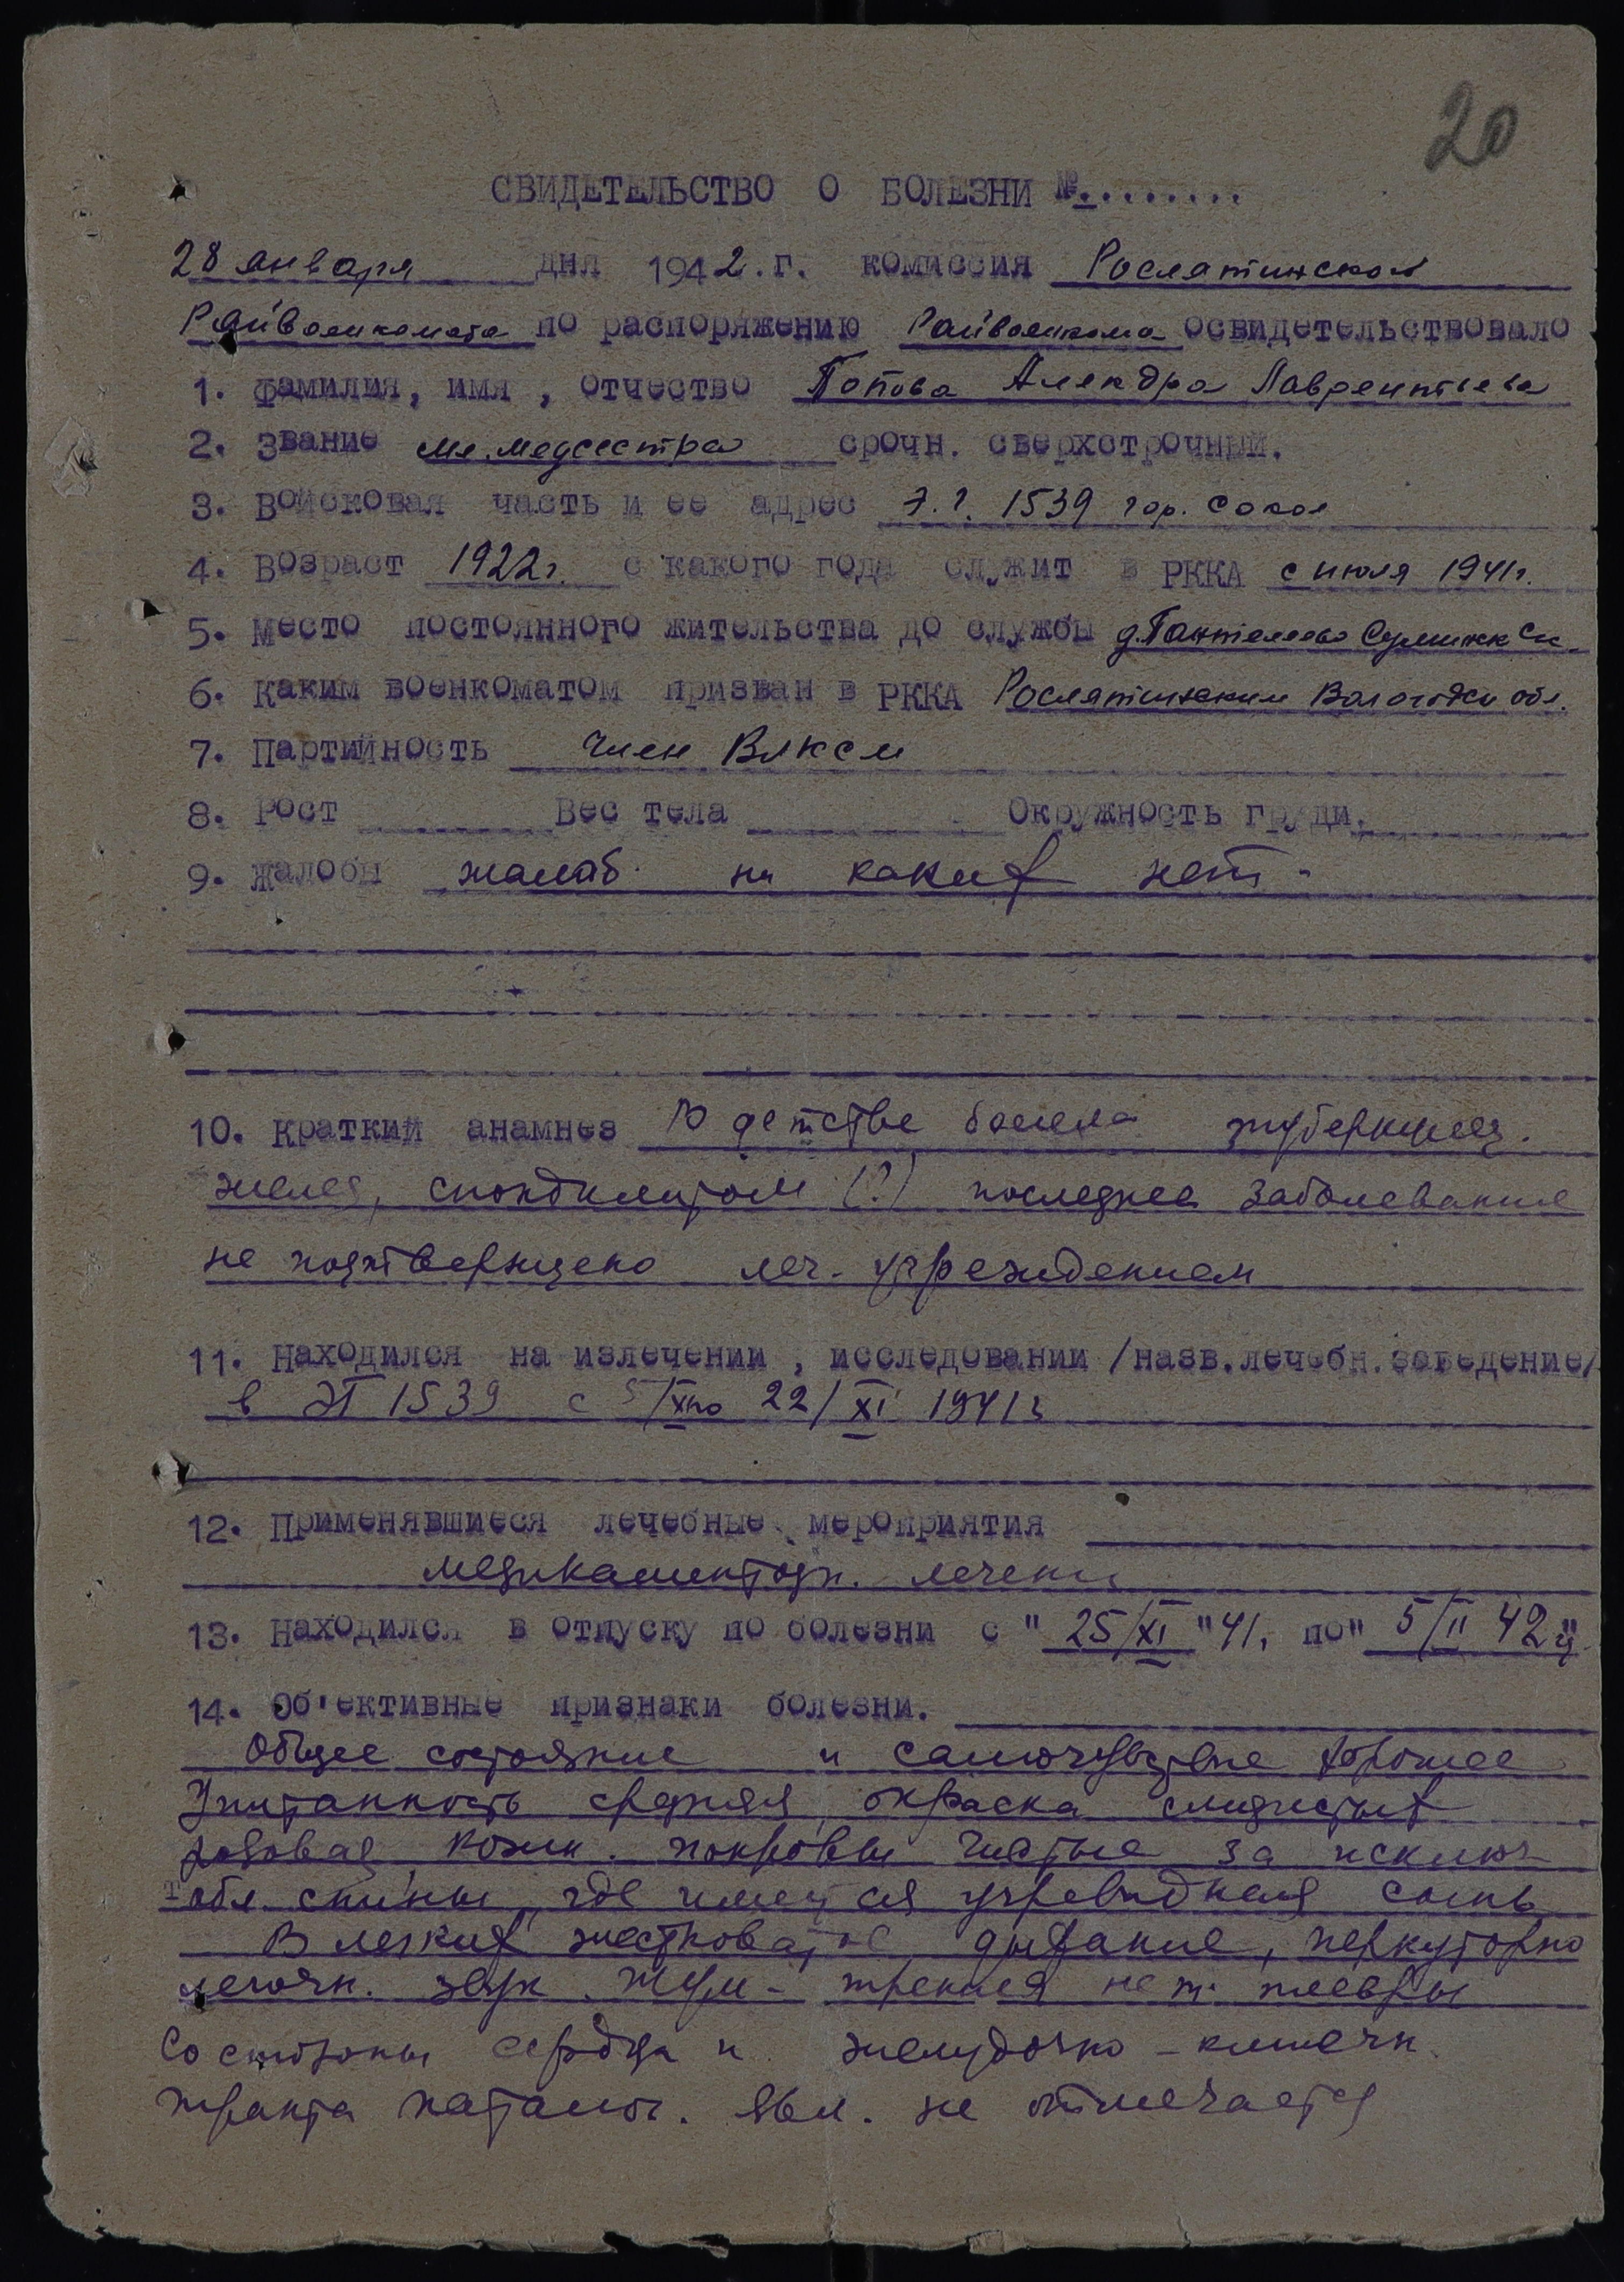 20
СВИДЕТЕЛЬСТВО О БОЛЕЗНИ №.........
28 января дня 1942.г. комиссия Рослятинского
Райвоенкомата по распоряжению Райвоенкома освидетельствовало
1. Фамилия, имя, отчество Попова Алекдра Лаврентьева
2. Звание мл. медсестра срочн. сверхстрочный.
3. Войсковая часть и ее адрес Э.Г. 1539 гор. Сокол
4. Возраст 1922г. с какого года служит в РККА с июля 1941г.
5. Место постоянного жительства до службы д.Пантелеево
6. Каким военкоматом призван в РККА Рослятинским Вологодск обл.
7. Партийность Член ВЛКСМ
8. Рост Вес тела Окружность груди.
9. Жалобы жалоб ни каких нет
10. Краткий анамнез В детстве болела туберкулез.
желез, спондилитом (?) последнее заболевание
не подтверждено леч. учреждением
11. Находился на излечении, исследовании /назв.лечебн.заведение/
в ЭГ 1539 с 5/XI по 22/XI 1941г
12. Применявшиеся лечебные мероприятия
медикаментозн. лечени
13. Находился в отпуску по болезни с " 25/XI "41. по" 5/II 42 г"
14. Об'ективные признаки болезни.
Общее состояние и самочувствие хорошее
Упитанность средняя, окраска слизистых
розовая, кожн. покровы чистые за исключ
обл. спины, где имеется угревидная сыпь
В легких жестковатое дыхание, перкуторно
легочн. звук. Шум - трения нет плевры
Со стороны сердца и желудочно-кишечн.
тракта патолог. явл. не отмечается